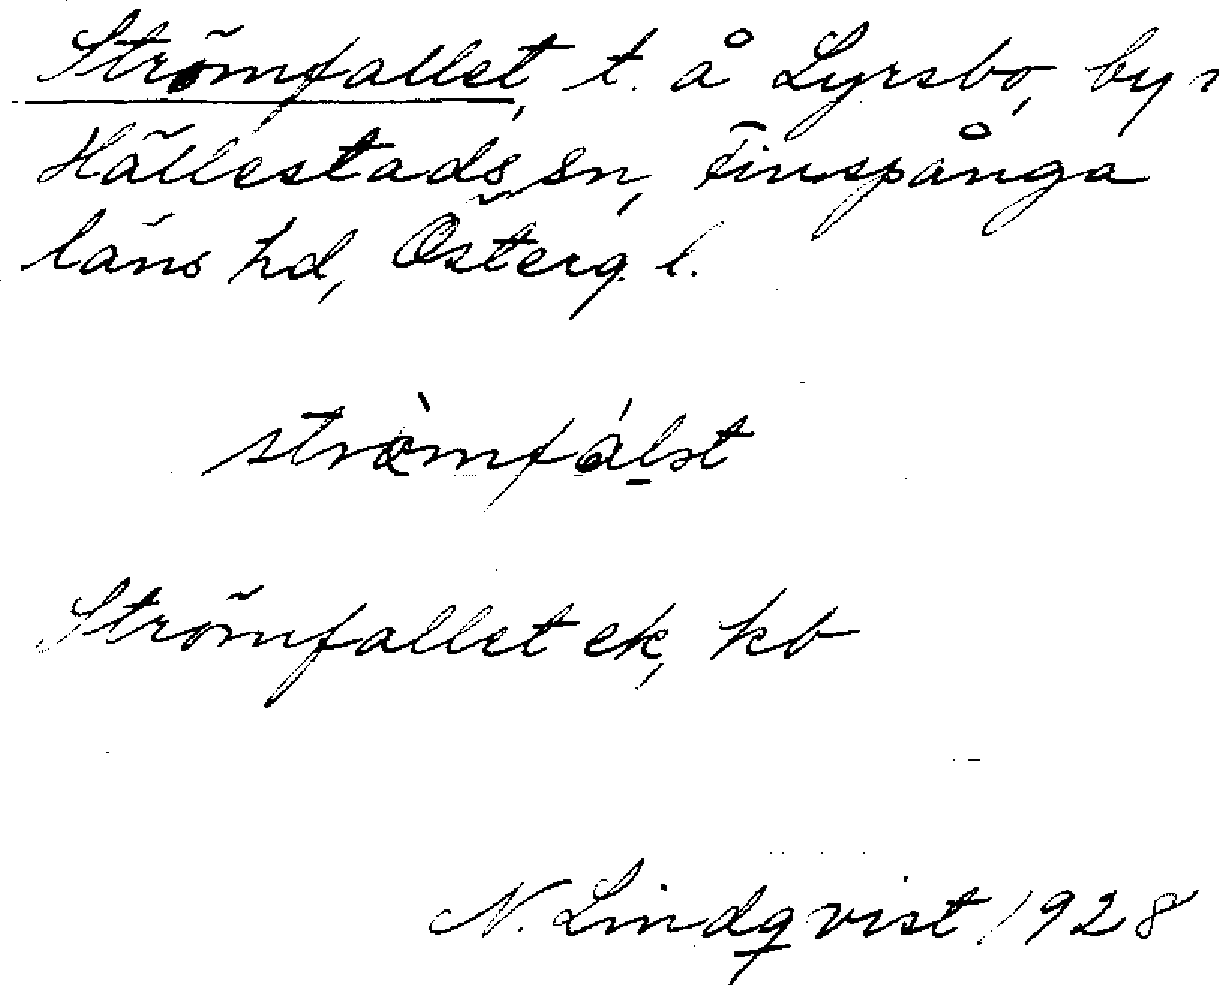 Strömfallet, t. å Lyrsbo, by i
Hällestads sn, Finspånga
läns hd, Österg. l.
strò̀mfálst
Strömfallet ek, kb
N. Lindqvist 1928